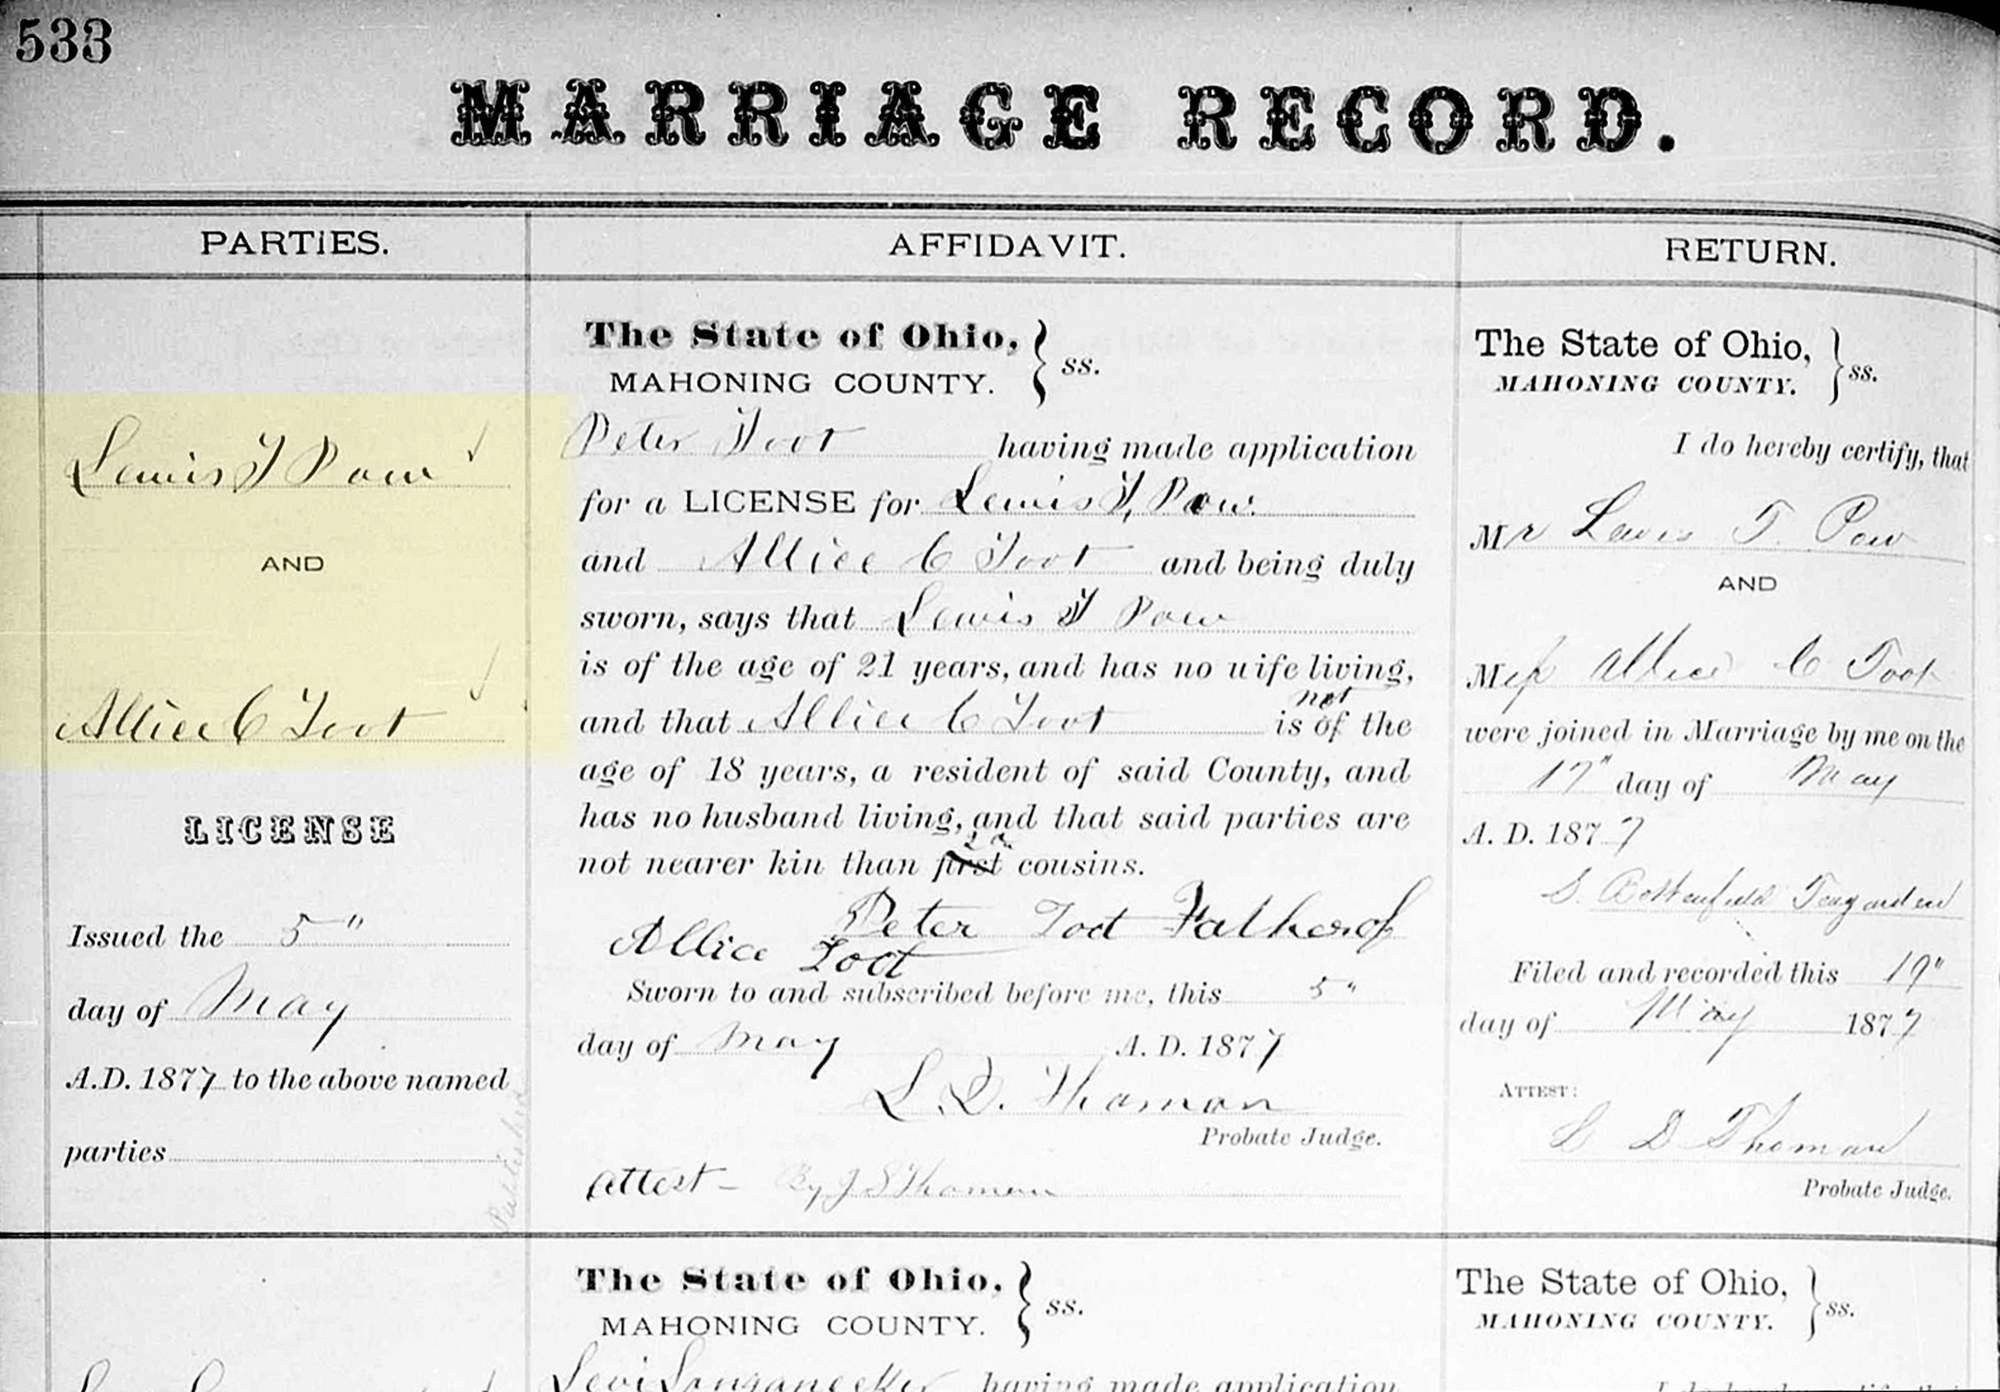 533
MARRIAGE RECORD.
PARTIES.
Lewis T Pow
AND
Allice C Toot
LICENSE
Issued the 5"
day of May
A.D. 1877 to the above named
parties
Published
AFFIDAVIT.
The State of Ohio,
MAHONING COUNTY. } ss.
Peter Toot having made application
for a LICENSE for Lewis T, Pow.
and Allice C Toot and being duly
sworn, says that Lewis T Pow
is of the age of 21 years, and has no wife living,
not
and that Allice C Toot is of the
age of 18 years, a resident of said County, and
has no husband living, and that said parties are
not nearer kin than first cousins.
Peter Toot Father of
Allice Toot
Sworn to and subscribed before me, this 5"
day of May A. D. 1877
L. D. Thoman
Probate Judge.
Attest - By J S Thoman
RETURN.
The State of Ohio,
MAHONING COUNTY. } ss.
I do hereby certify, that
Mr Lewis T. Pow
AND
Miss Allice C Toot
were joined in Marriage by me on the
17" day of May
A. D. 1877
S.
Filed and recorded this 19"
day of May 1877
ATTEST:
L D Thoman
Probate Judge.
The State of Ohio,
MAHONING COUNTY. } ss.
Levi Longanecker having made application
The State of Ohio,
MAHONING COUNTY. } ss.
I do hereby certify, that